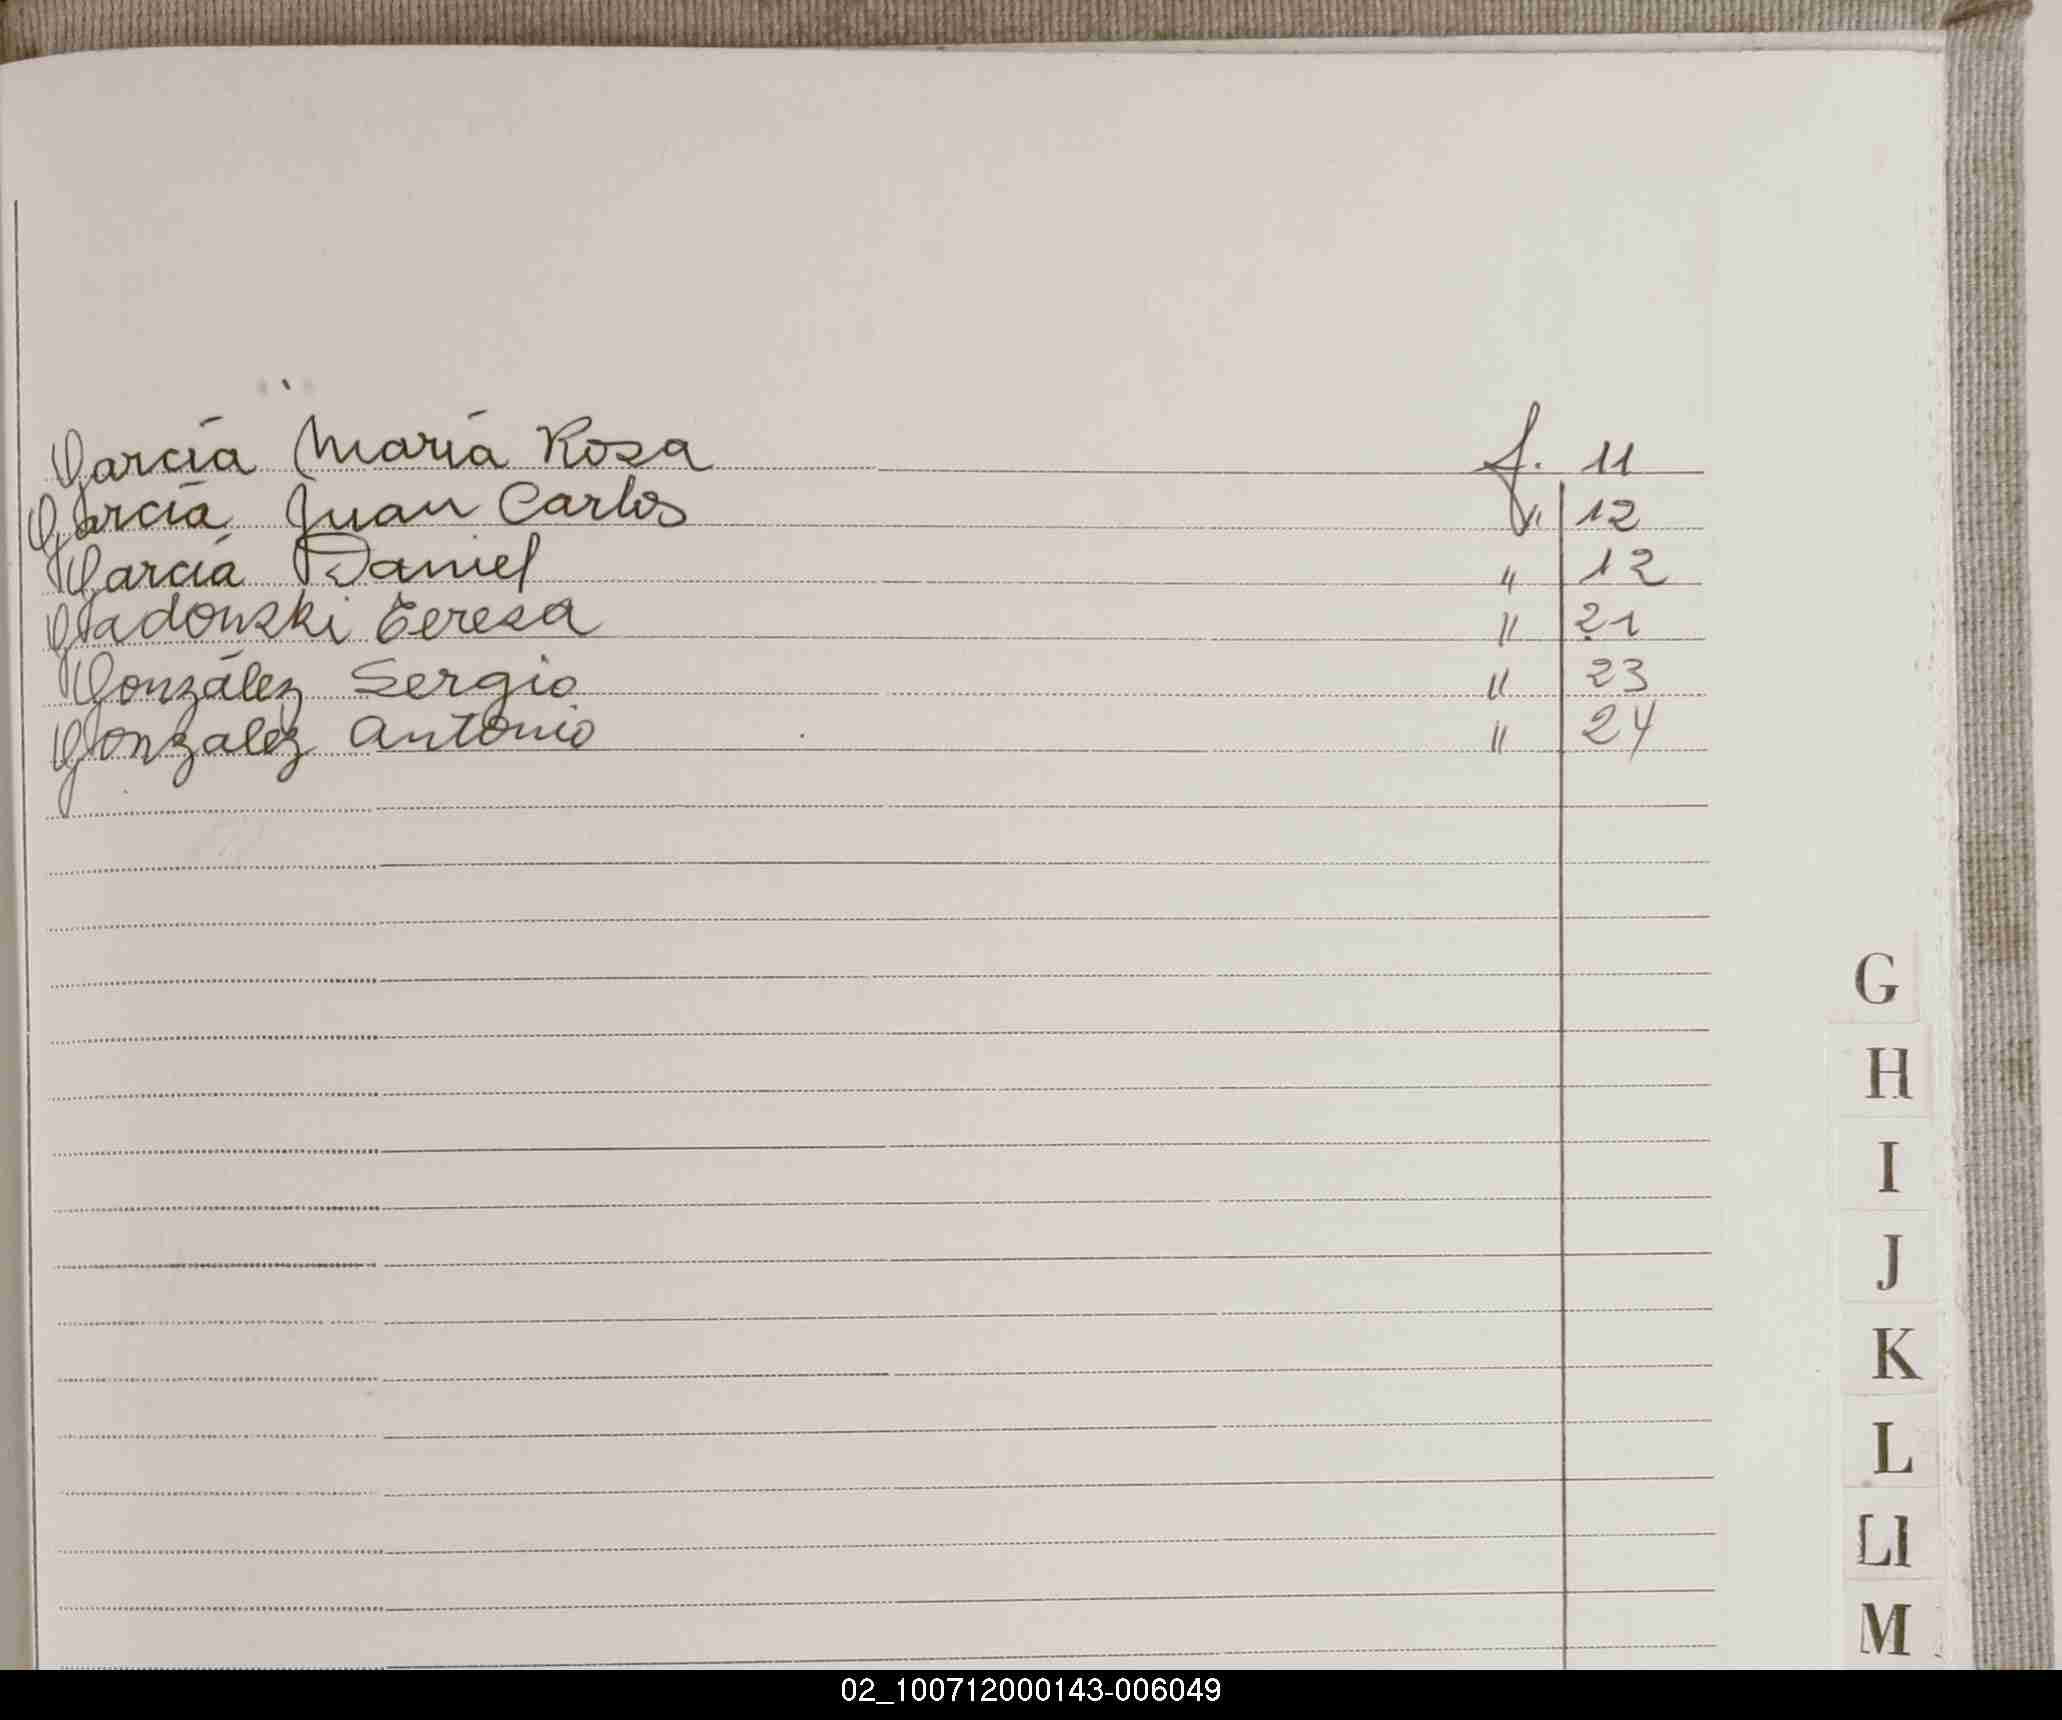 García María Rosa f. 11
García Juan Carlos " 12
García Daniel " 12
Gadonski Teresa " 21
González Sergio " 23
Gonzalez Antonio " 24
G
H
I
J
K
L
Ll
M
02_100712000143-006049